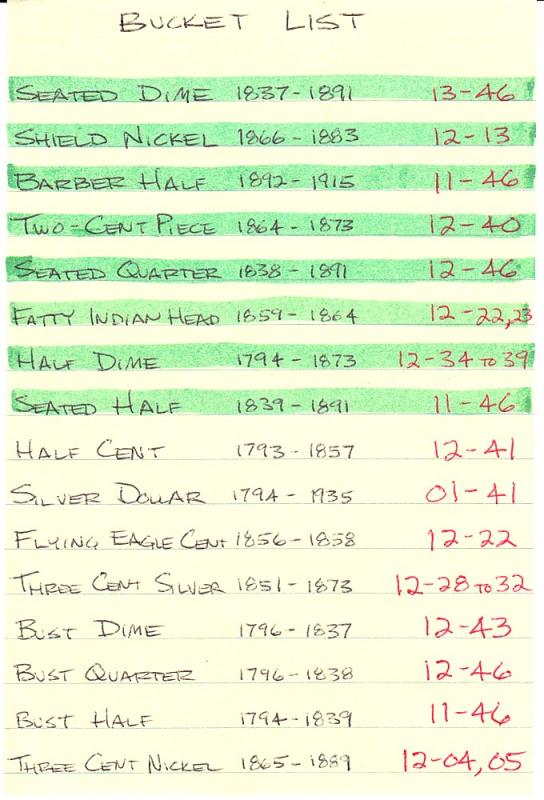 BUCKET LIST
SEATED DIME 1837-1891 13-46
SHIELD NICKEL 1866-1883 12-13
BARBER HALF 1892-1915 11-46
TWO-CENT PIECE 1864-1873 12-40
SEATED QUARTER 1838-1891 12-46
FATTY INDIAN HEAD 1859-1864 12-22,23
HALF DIME 1794-1873 12-34 TO 39
SEATED HALF 1839-1891 11-46
HALF CENT 1793-1857 12-41
SILVER DOLLAR 1794-1935 01-41
FLYING EAGLE CENT 1856-1858 12-22
THREE CENT SILVER 1851-1873 12-28 TO 32
BUST DIME 1796-1837 12-43
BUST QUARTER 1796-1838 12-46
BUST HALF 1794-1839 11-46
THREE CENT NICKEL 1865-1889 12-04,05